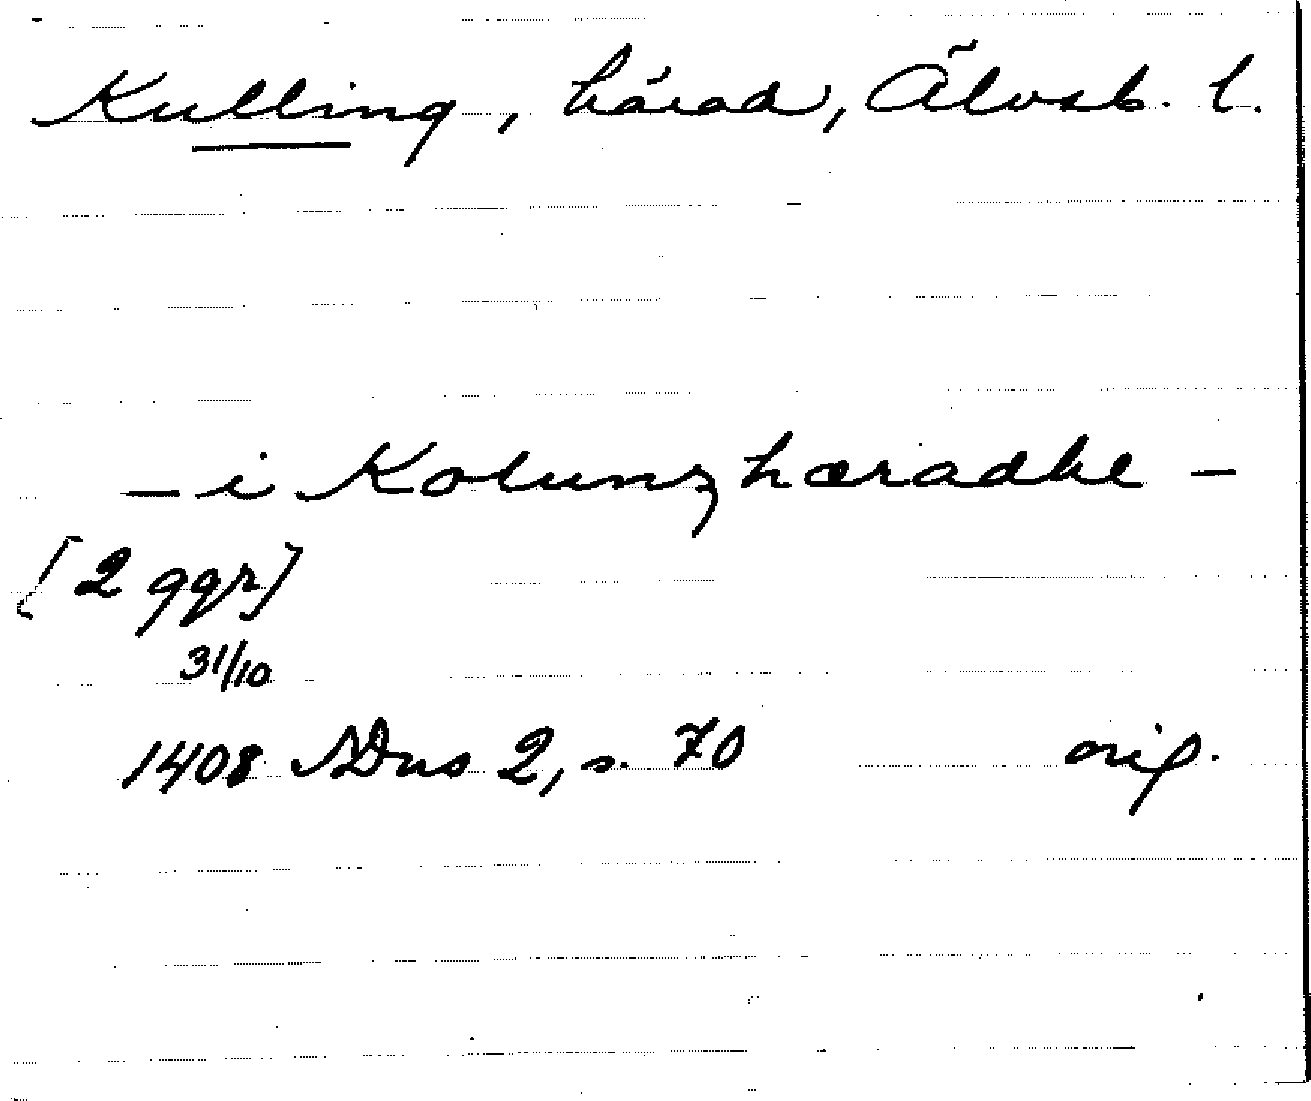 Kulling, härad, Älvsb. l.
— i Kolunghæradhe —
[2 ggr]
31/10
1408 SDns 2, s. 70 orig.